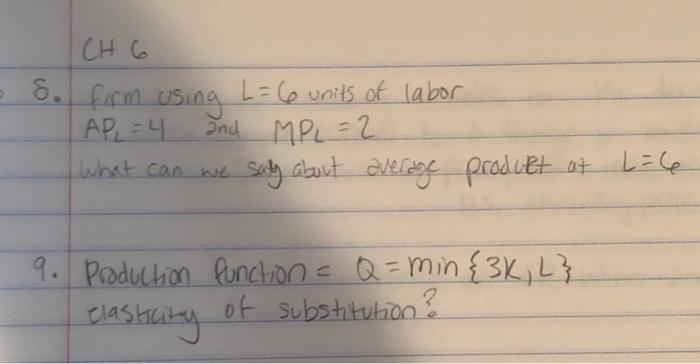 CH 6
8. firm using L=6 units of labor
APL = 4 and MPL = 2
What can we say about average product at L=6
9. Production function = Q = min {3K, L}
elasticity of substitution?